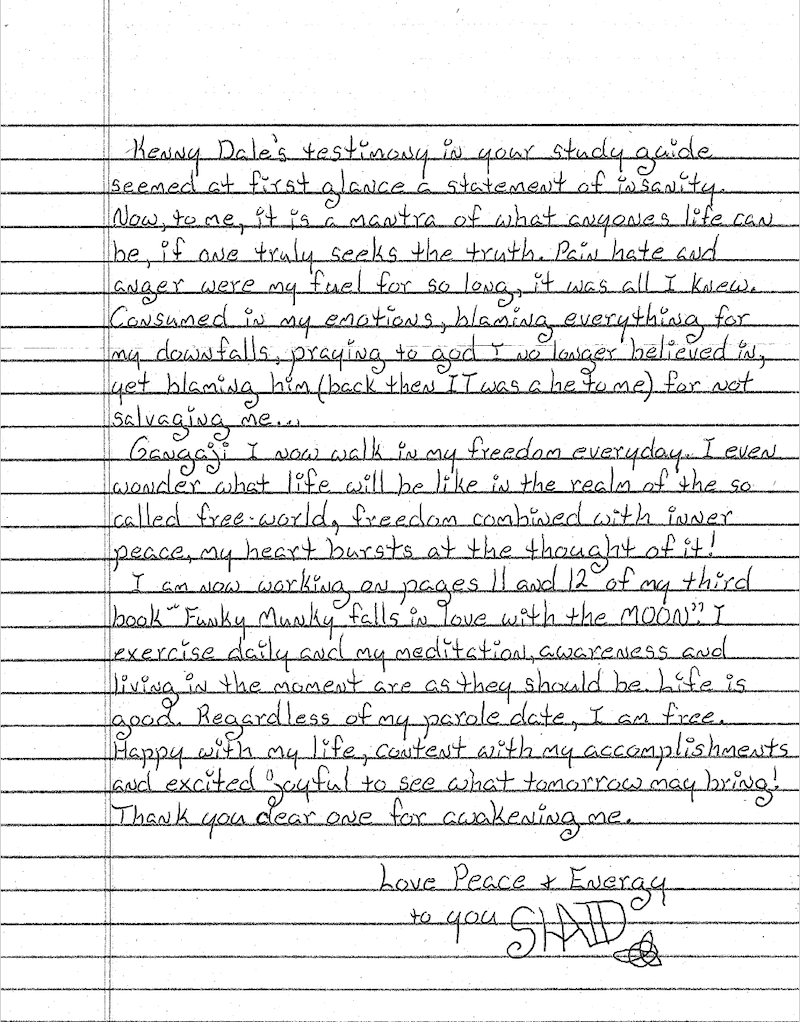 Kenny Dale's testimony in your study guide
seemed at first glance a statement of insanity.
Now, to me, it is a mantra of what anyones life can
be, if one truly seeks the truth. Pain hate and
anger were my fuel for so long, it was all I knew.
Consumed in my emotions, blaming everything for
my downfalls, praying to god I no longer believed in,
yet blaming him (back then IT was a he to me) for not
salvaging me...
Gangaji I now walk in my freedom everyday. I even
wonder what life will be like in the realm of the so
called free-world, freedom combined with inner
peace, my heart bursts at the thought of it!
I am now working on pages 11 and 12 of my third
book "Funky Munky falls in love with the MOON". I
exercise daily and my meditation, awareness and
living in the moment are as they should be. Life is
good. Regardless of my parole date, I am free.
Happy with my life, content with my accomplishments
and excited joyful to see what tomorrow may bring!
Thank you dear one for awakening me.
Love Peace + Energy
to you